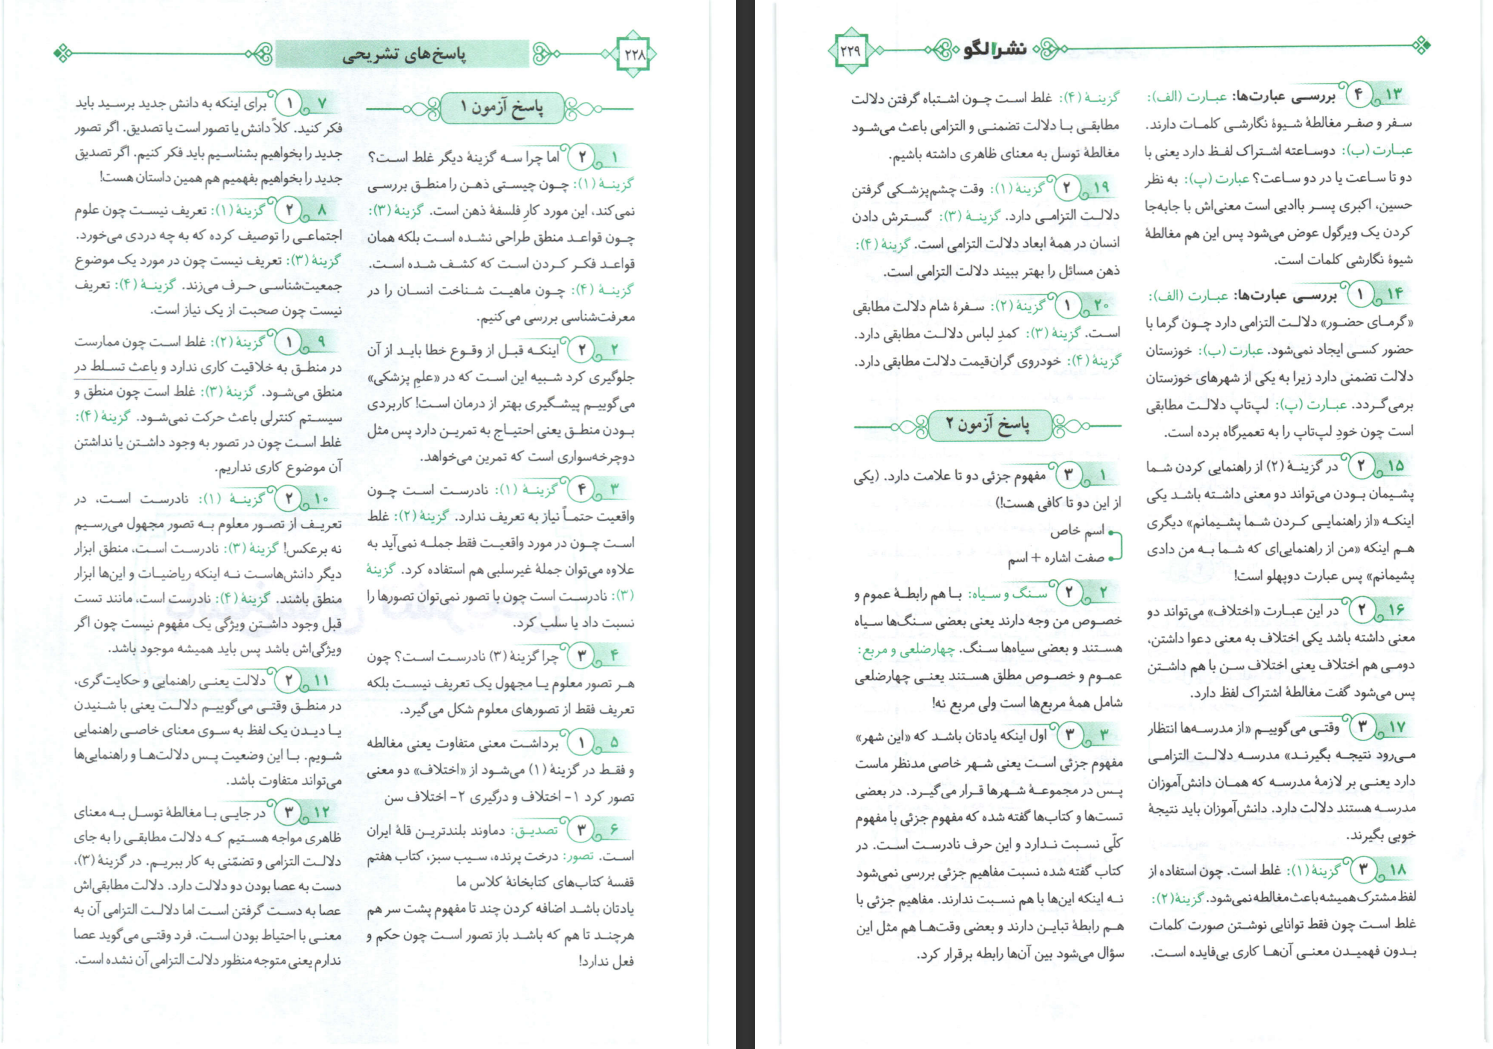 ۲۲۸
پاسخ‌های تشریحی
پاسخ آزمون ۱
۱ ۲ اما چرا سه گزینهٔ دیگر غلط است؟
گزینهٔ (۱): چون چیستی ذهن را منطق بررسی
نمی‌کند، این مورد کارِ فلسفهٔ ذهن است. گزینهٔ (۳):
چون قواعد منطق طراحی نشده است بلکه همان
قواعد فکر کردن است که کشف شده است.
گزینهٔ (۴): چون ماهیت شناخت انسان را در
معرفت‌شناسی بررسی می‌کنیم.
۲ ۲ اینکه قبل از وقوع خطا باید از آن
جلوگیری کرد شبیه این است که در «علمِ پزشکی»
می‌گوییم پیشگیری بهتر از درمان است! کاربردی
بودن منطق یعنی احتیاج به تمرین دارد پس مثل
دوچرخه‌سواری است که تمرین می‌خواهد.
۳ ۴ گزینهٔ (۱): نادرست است چون
واقعیت حتماً نیاز به تعریف ندارد. گزینهٔ (۲): غلط
است چون در مورد واقعیت فقط جمله نمی‌آید به
علاوه می‌توان جملهٔ غیرسلبی هم استفاده کرد. گزینهٔ
(۳): نادرست است چون با تصور نمی‌توان تصورها را
نسبت داد یا سلب کرد.
۴ ۳ چرا گزینهٔ (۳) نادرست است؟ چون
هر تصور معلوم یا مجهول یک تعریف نیست بلکه
تعریف فقط از تصورهای معلوم شکل می‌گیرد.
۵ ۱ برداشت معنی متفاوت یعنی مغالطه
و فقط در گزینهٔ (۱) می‌شود از «اختلاف» دو معنی
تصور کرد ۱- اختلاف و درگیری ۲- اختلاف سن
۶ ۳ تصدیق: دماوند بلندترین قلهٔ ایران
است. تصور: درخت پرنده، سیب سبز، کتاب هفتم
قفسهٔ کتاب‌های کتابخانهٔ کلاس ما
یادتان باشد اضافه کردن چند تا مفهوم پشت سر هم
هرچند تا هم که باشد باز تصور است چون حکم و
فعل ندارد!
۷ ۱ برای اینکه به دانش جدید برسید باید
فکر کنید. کلاً دانش یا تصور است یا تصدیق. اگر تصور
جدید را بخواهیم بشناسیم باید فکر کنیم. اگر تصدیق
جدید را بخواهیم بفهمیم هم همین داستان هست!
۸ ۲ گزینهٔ (۱): تعریف نیست چون علوم
اجتماعی را توصیف کرده که به چه دردی می‌خورد.
گزینهٔ (۳): تعریف نیست چون در مورد یک موضوع
جمعیت‌شناسی حرف می‌زند. گزینهٔ (۴): تعریف
نیست چون صحبت از یک نیاز است.
۹ ۱ گزینهٔ (۲): غلط است چون ممارست
در منطق به خلاقیت کاری ندارد و باعث تسلط در
منطق می‌شود. گزینهٔ (۳): غلط است چون منطق و
سیستم کنترلی باعث حرکت نمی‌شود. گزینهٔ (۴):
غلط است چون در تصور به وجود داشتن یا نداشتن
آن موضوع کاری نداریم.
۱۰ ۲ گزینهٔ (۱): نادرست است، در
تعریف از تصور معلوم به تصور مجهول می‌رسیم
نه برعکس! گزینهٔ (۳): نادرست است، منطق ابزار
دیگر دانش‌هاست نه اینکه ریاضیات و این‌ها ابزار
منطق باشند. گزینهٔ (۴): نادرست است، مانند تست
قبل وجود داشتن ویژگی یک مفهوم نیست چون اگر
ویژگی‌اش باشد پس باید همیشه موجود باشد.
۱۱ ۲ دلالت یعنی راهنمایی و حکایت‌گری،
در منطق وقتی می‌گوییم دلالت یعنی با شنیدن
یا دیدن یک لفظ به سوی معنای خاصی راهنمایی
شویم. با این وضعیت پس دلالت‌ها و راهنمایی‌ها
می‌تواند متفاوت باشد.
۱۲ ۳ در جایی با مغالطهٔ توسل به معنای
ظاهری مواجه هستیم که دلالت مطابقی را به جای
دلالت التزامی و تضمّنی به کار ببریم. در گزینهٔ (۳)،
دست به عصا بودن دو دلالت دارد. دلالت مطابقی‌اش
عصا به دست گرفتن است اما دلالت التزامی آن به
معنی با احتیاط بودن است. فرد وقتی می‌گوید عصا
ندارم یعنی متوجه منظور دلالت التزامی آن نشده است.
نشرالگو
۲۲۹
۱۳ ۴ بررسی عبارت‌ها: عبارت (الف):
سفر و صفر مغالطهٔ شیوهٔ نگارشی کلمات دارند.
عبارت (ب): دوساعته اشتراک لفظ دارد یعنی با
دو تا ساعت یا در دو ساعت؟ عبارت (پ): به نظر
حسین، اکبری پسر باادبی است معنی‌اش با جابه‌جا
کردن یک ویرگول عوض می‌شود پس این هم مغالطهٔ
شیوهٔ نگارشی کلمات است.
۱۴ ۱ بررسی عبارت‌ها: عبارت (الف):
«گرمای حضور» دلالت التزامی دارد چون گرما با
حضور کسی ایجاد نمی‌شود. عبارت (ب): خوزستان
دلالت تضمنی دارد زیرا به یکی از شهرهای خوزستان
برمی‌گردد. عبارت (پ): لپ‌تاپ دلالت مطابقی
است چون خودِ لپ‌تاپ را به تعمیرگاه برده است.
۱۵ ۲ در گزینهٔ (۲) از راهنمایی کردن شما
پشیمان بودن می‌تواند دو معنی داشته باشد یکی
اینکه «از راهنمایی کردن شما پشیمانم» دیگری
هم اینکه «من از راهنمایی‌ای که شما به من دادی
پشیمانم» پس عبارت دوپهلو است!
۱۶ ۲ در این عبارت «اختلاف» می‌تواند دو
معنی داشته باشد یکی اختلاف به معنی دعوا داشتن،
دومی هم اختلاف یعنی اختلاف سن با هم داشتن
پس می‌شود گفت مغالطهٔ اشتراک لفظ دارد.
۱۷ ۳ وقتی می‌گوییم «از مدرسه‌ها انتظار
می‌رود نتیجه بگیرند» مدرسه دلالت التزامی
دارد یعنی بر لازمهٔ مدرسه که همان دانش‌آموزان
مدرسه هستند دلالت دارد. دانش‌آموزان باید نتیجهٔ
خوبی بگیرند.
۱۸ ۳ گزینهٔ (۱): غلط است. چون استفاده از
لفظ مشترک همیشه باعث مغالطه نمی‌شود. گزینهٔ (۲):
غلط است چون فقط توانایی نوشتن صورت کلمات
بدون فهمیدن معنی آن‌ها کاری بی‌فایده است.
گزینهٔ (۴): غلط است چون اشتباه گرفتن دلالت
مطابقی با دلالت تضمنی و التزامی باعث می‌شود
مغالطهٔ توسل به معنای ظاهری داشته باشیم.
۱۹ ۲ گزینهٔ (۱): وقت چشم‌پزشکی گرفتن
دلالت التزامی دارد. گزینهٔ (۳): گسترش دادن
انسان در همهٔ ابعاد دلالت التزامی است. گزینهٔ (۴):
ذهن مسائل را بهتر ببیند دلالت التزامی است.
۲۰ ۱ گزینهٔ (۲): سفرهٔ شام دلالت مطابقی
است. گزینهٔ (۳): کمدِ لباس دلالت مطابقی دارد.
گزینهٔ (۴): خودروی گران‌قیمت دلالت مطابقی دارد.
پاسخ آزمون ۲
۱ ۳ مفهوم جزئی دو تا علامت دارد. (یکی
از این دو تا کافی هست!)
اسم خاص
صفت اشاره + اسم
۲ ۲ سنگ و سیاه: با هم رابطهٔ عموم و
خصوص من وجه دارند یعنی بعضی سنگ‌ها سیاه
هستند و بعضی سیاه‌ها سنگ. چهارضلعی و مربع:
عموم و خصوص مطلق هستند یعنی چهارضلعی
شامل همهٔ مربع‌ها است ولی مربع نه!
۳ ۳ اول اینکه یادتان باشد که «این شهر»
مفهوم جزئی است یعنی شهر خاصی مدنظر ماست
پس در مجموعهٔ شهرها قرار می‌گیرد. در بعضی
تست‌ها و کتاب‌ها گفته شده که مفهوم جزئی با مفهوم
کلّی نسبت ندارد و این حرف نادرست است. در
کتاب گفته شده نسبت مفاهیم جزئی بررسی نمی‌شود
نه اینکه این‌ها با هم نسبت ندارند. مفاهیم جزئی با
هم رابطهٔ تباین دارند و بعضی وقت‌ها هم مثل این
سؤال می‌شود بین آن‌ها رابطه برقرار کرد.